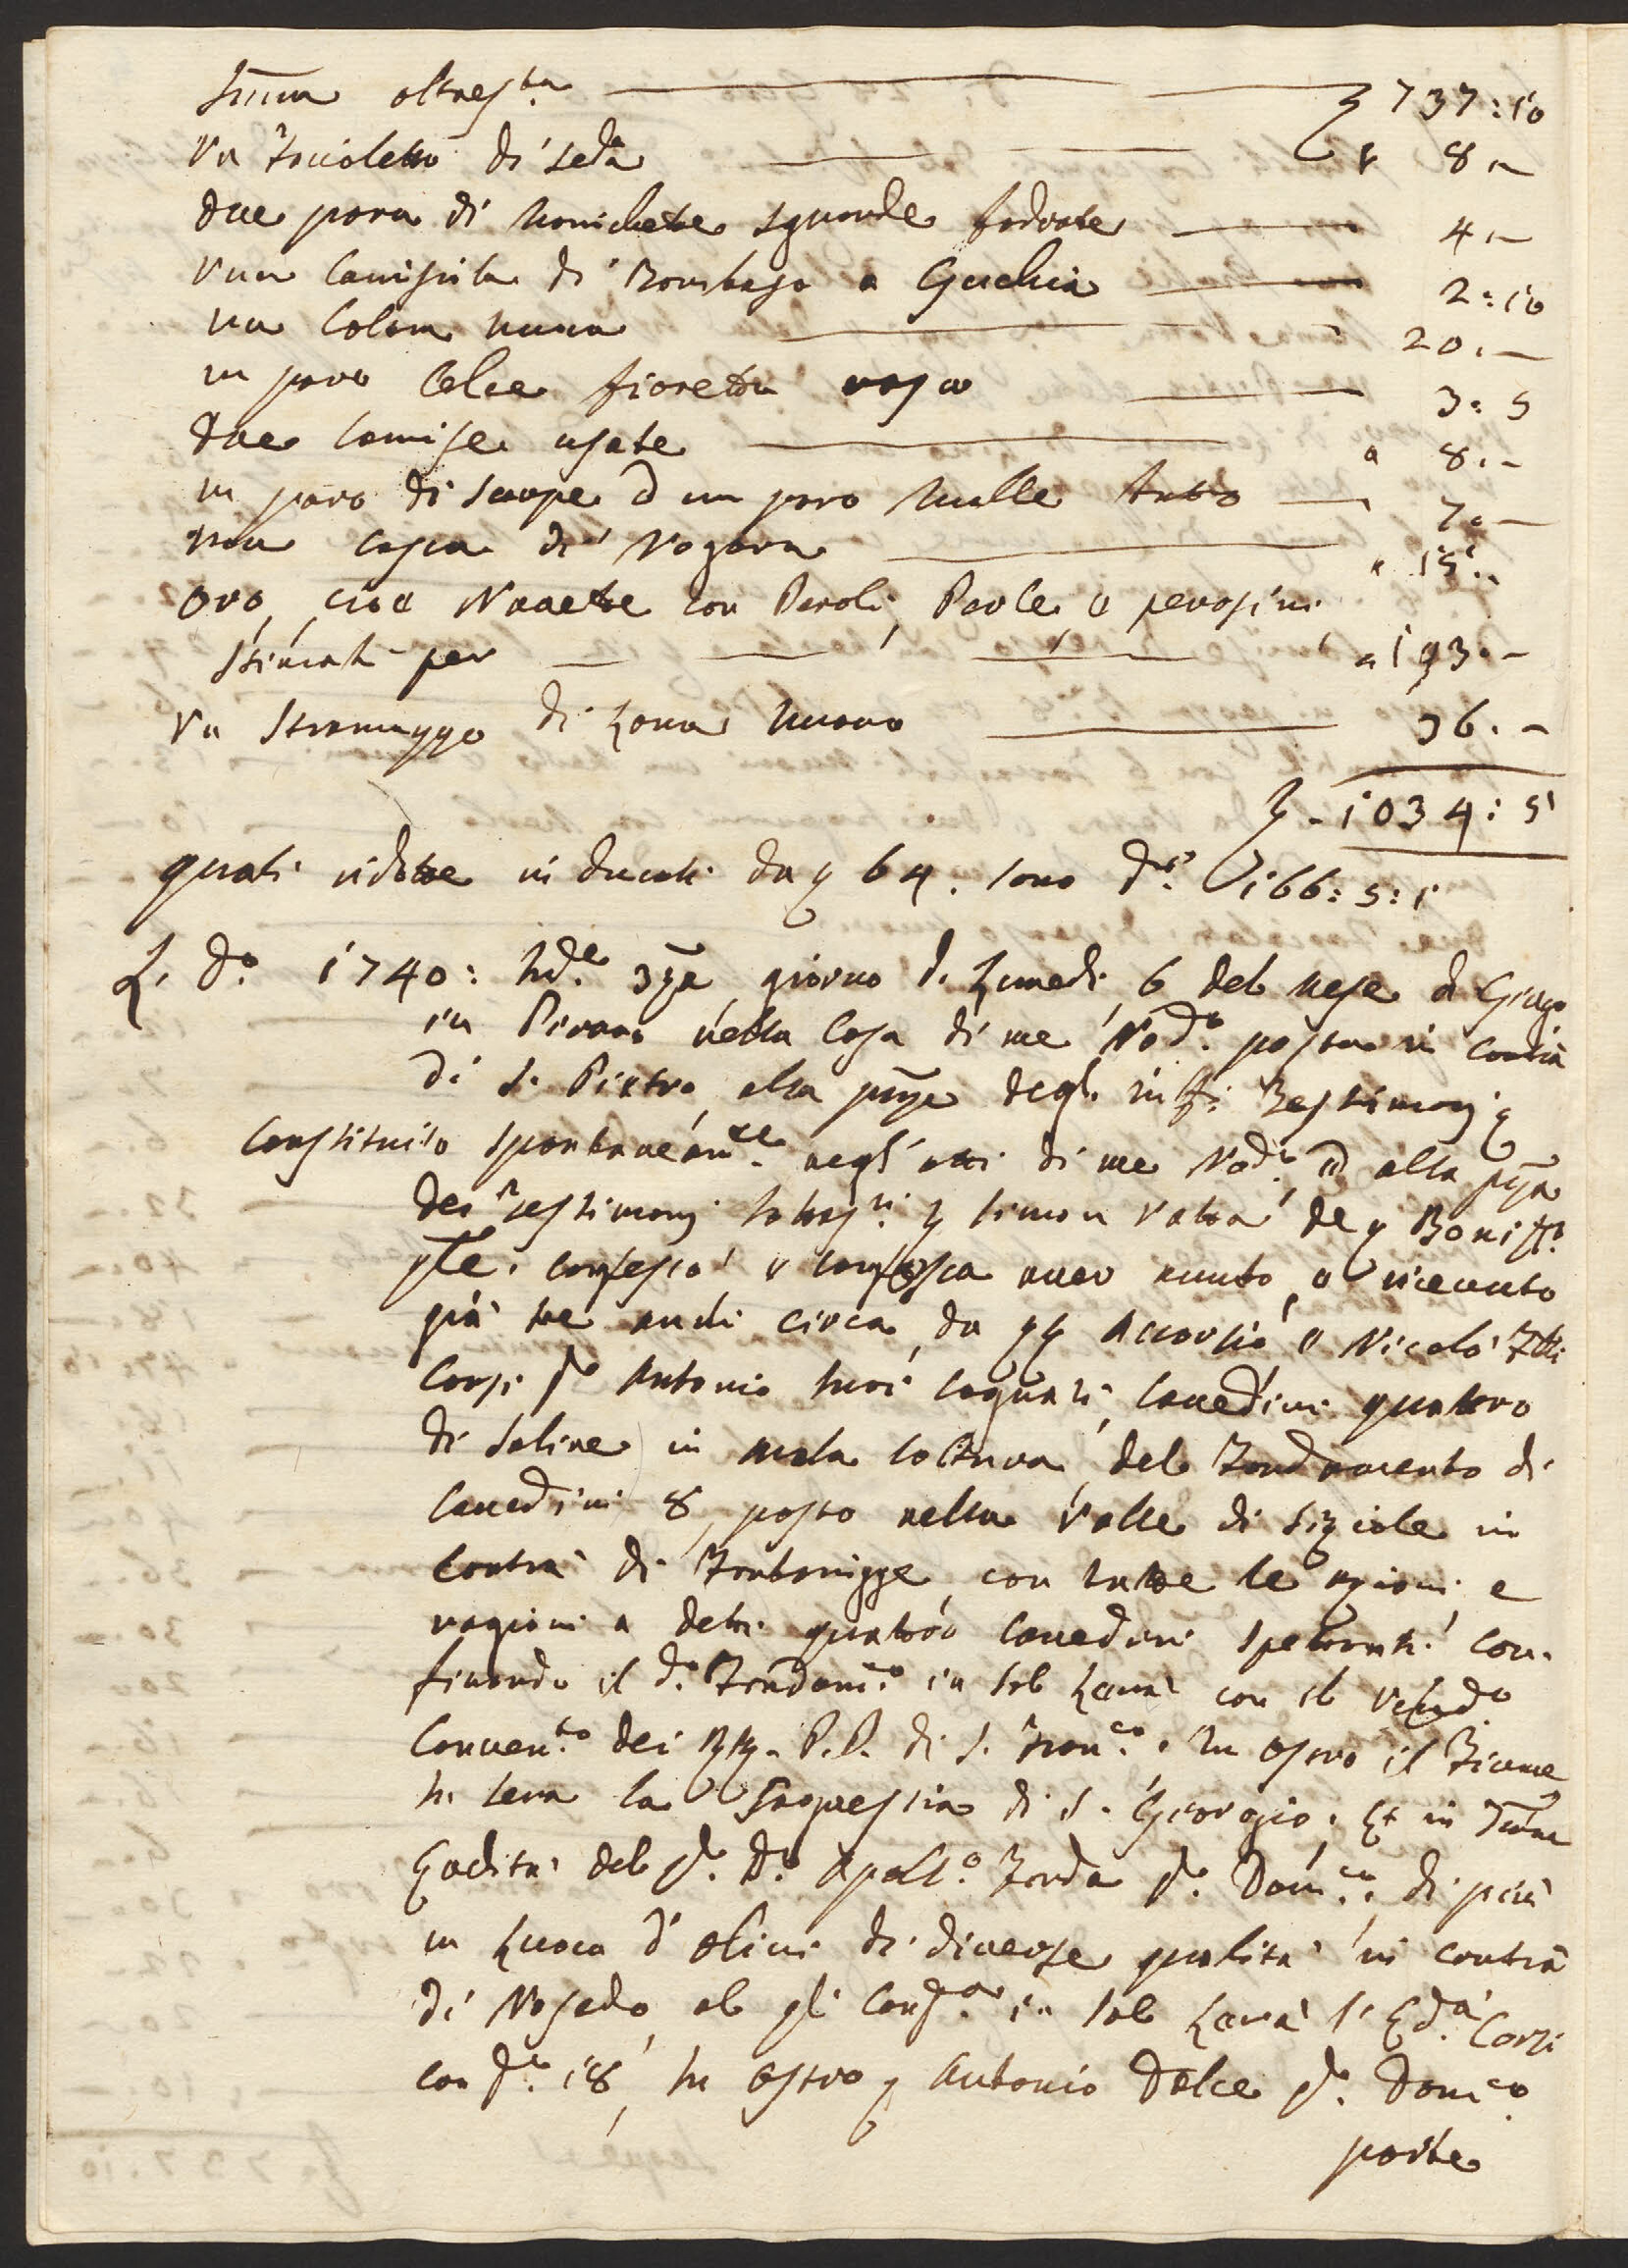 Suma oltres.ta L 737:10
Un Faccioletto di seda " 8.-
due para di manichette fodrate 4.-
Una Camisiola di Bombaso a Guchia 2:10
una Colana nuova 20.-
un paro Calce fioretto rosso 3:5
due Camise usate " 8.-
un paro di Scarpe et un paro Mulle 7.-
una Cassa di Nogara " 15.-
Oro, cioe Navette con Peroli, Perle, e perosini
stimati per " 193.-
Un Stramazzo di Lana nuovo 36.-
L - 1034:5
quali ridotte in ducati da L 6:4. sono d.ti 166:5:1
L. D.o 1740: Ind.e 3za giorno di Lunedi 6 del mese di Giugo
in Pirano nella Casa di me Nod.o posta in contrà
di S. Pietro, alla pnza degl' infti Testimonj
Constituito spontaneam.te negl' atti di me Nod.o, et alla pnza
dei Testimonj sotto s.ti Simon Vatta de Bonif.o
pte. confessò e confessa aver avuto, e riceuuto
già tre anni circa, da Accorsio e Nicolò Flli
Corsi q.m Antonio suoi cognati, Cauedini quattro
di Saline in mala coltura, del Fondamento di
Cauedini 8, posto nella Valle di Siziole in
contrà di Fontanigge, con tutte le azioni e
ragioni a detti quattro Cauedini spettanti con-
finando il d.o Fondam.to in sol Leuà con il Vendo
Conuen.to dei RR. P.P. di S. Fran.co. In ostro il Fiume
In tera la Sagrestia di S. Giorgio. Et in
Eredità del q.m D.o Apoll.o Fonda q.m Dom.co. di più
un Luoco d' oliui di diuerse qualità in contrà
di Nosedo, al qle confa in sol Leuà l' Ed.tà Corsi
con 18, In ostro Antonio Dolce q.m Dom.co
parte